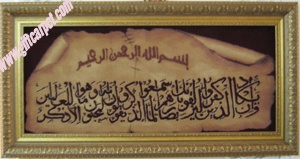 www.giftcarpet.com
بسم الله الرحمن الرحيم
وإن يكاد الذين كفروا ليزلقونك بأبصارهم لما سمعوا الذكر ويقولون إنه لمجنون وما هو إلا ذكر للعالمين